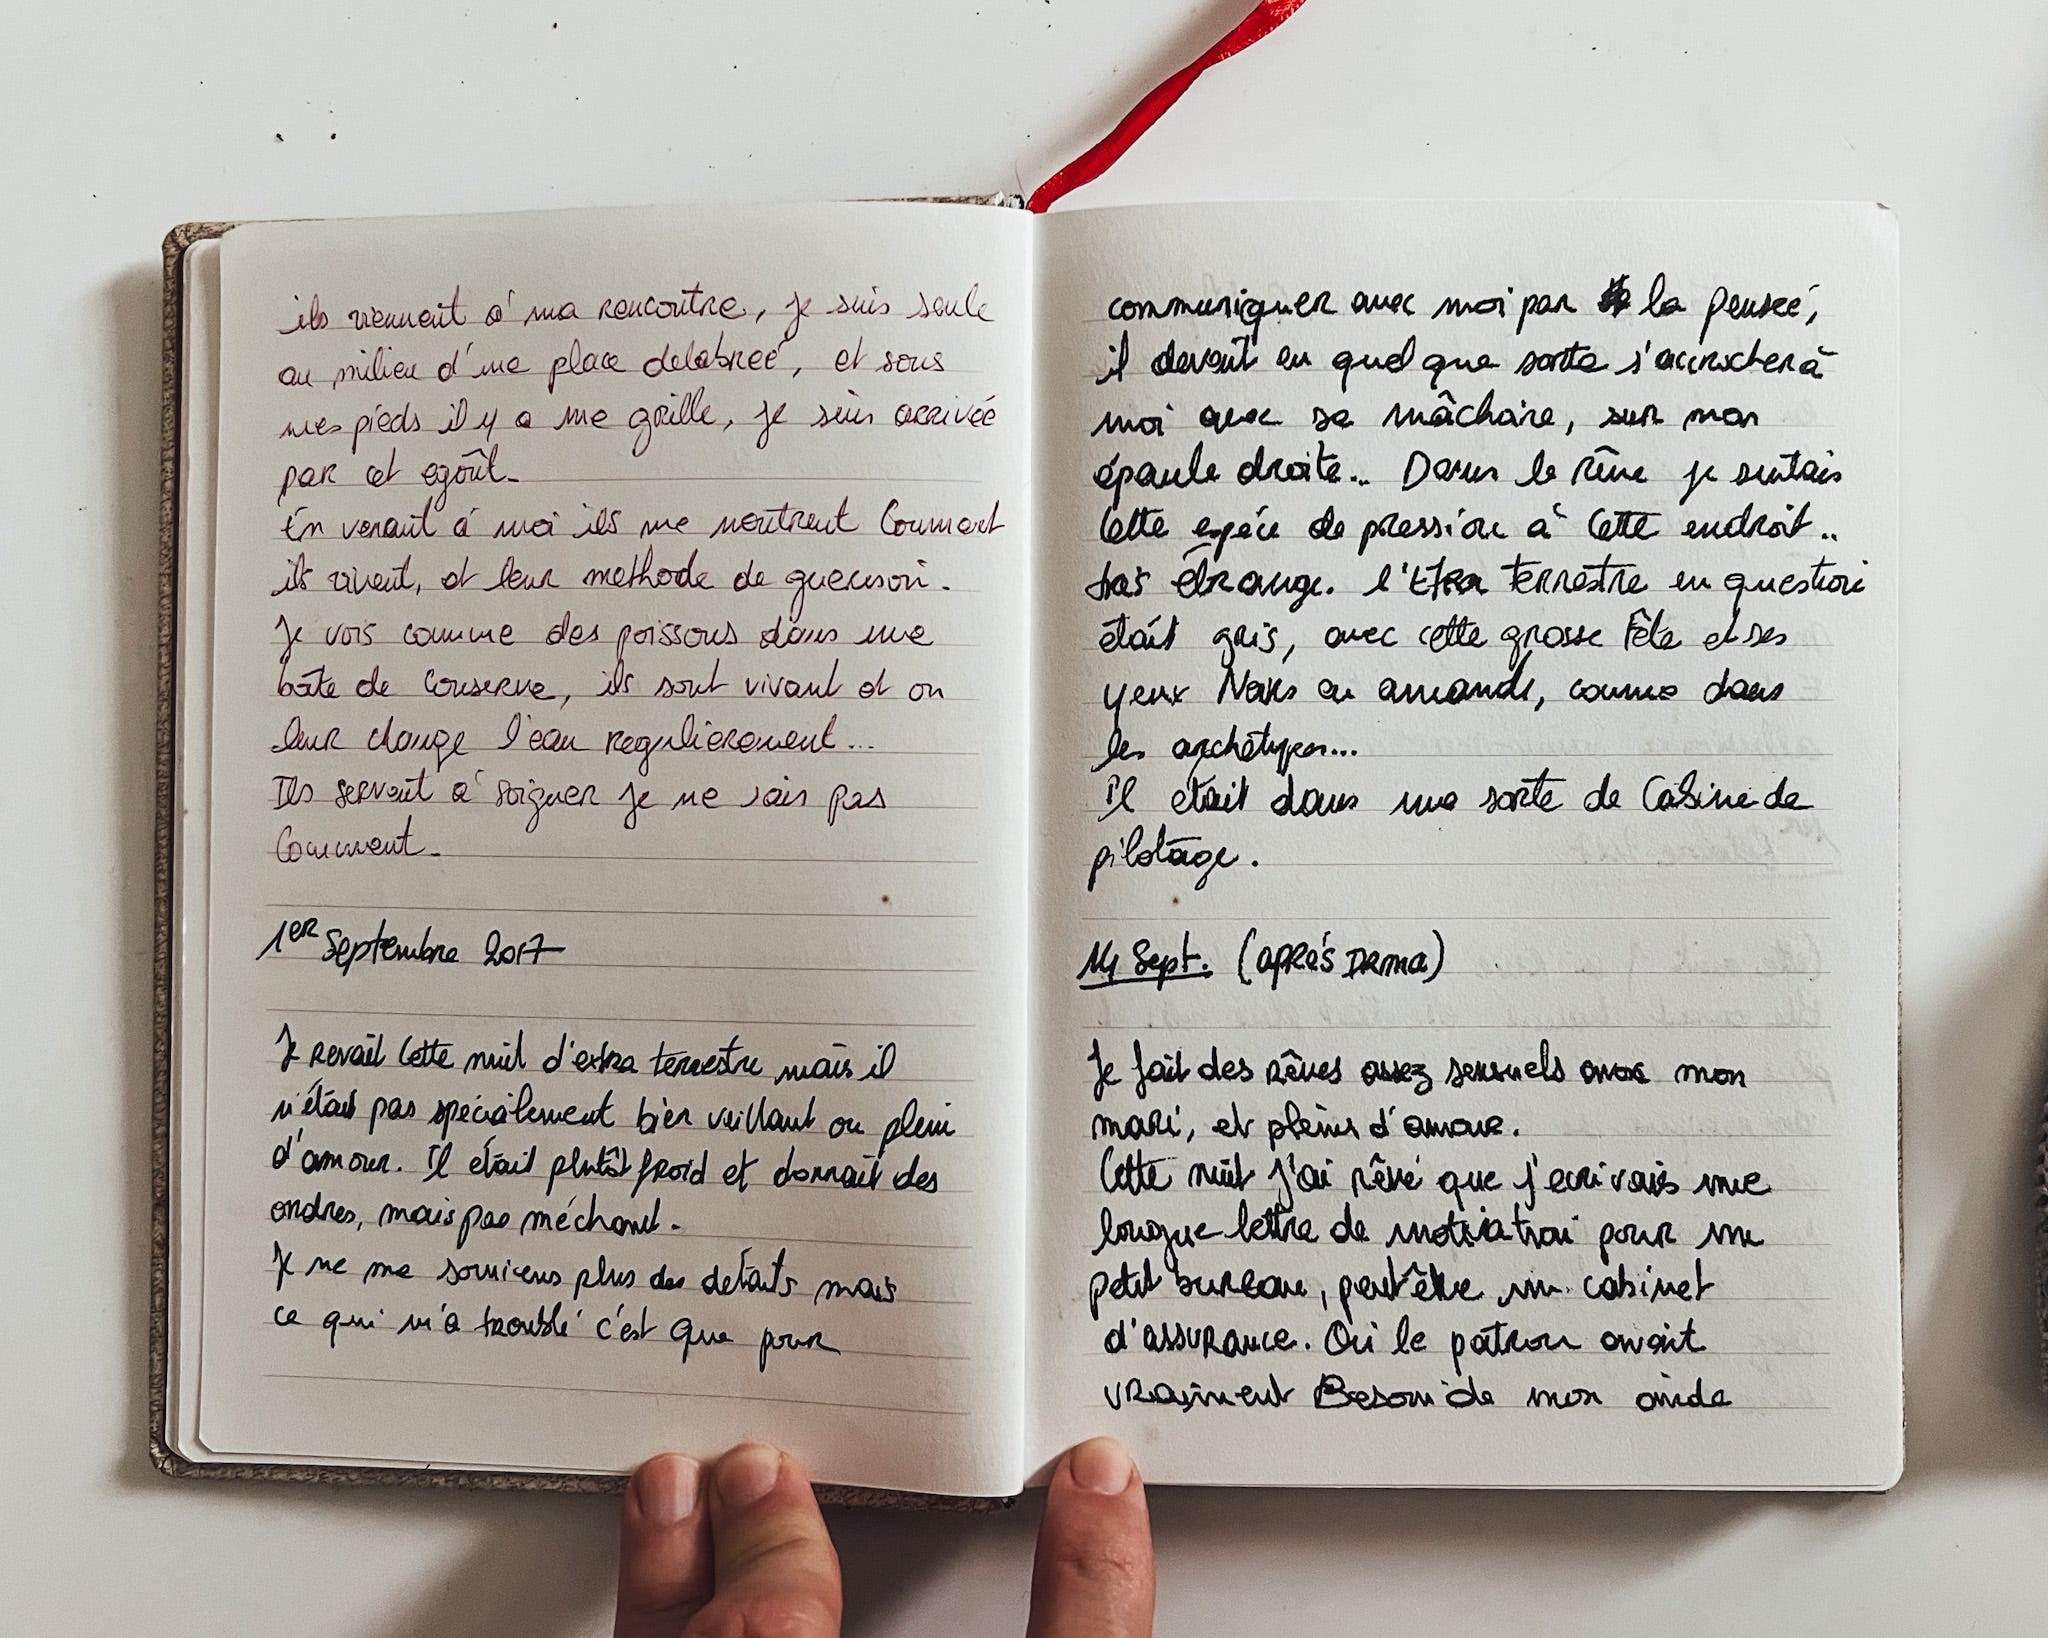 ils viennent à ma rencontre, je suis seule
au milieu d'une place delabreé, et sous
mes pieds il y a une grille, je suis arrivée
par cet egoût.
En venant à moi ils me montrent comment
ils vivent, et leur methode de guerison.
Je vois comme des poissons dans une
boîte de conserve, ils sont vivant et on
leur change l'eau regulierement...
Ils servent à soigner je ne sais pas
comment.
1ER Septembre 2017
Je revait cette nuit d'extra terrestre mais il
n'était pas spécialement bien veillant ou plein
d'amour. Il était plutôt froid et donnait des
ordres, mais pas méchant.
Je ne me souviens plus des détails mais
ce qui m'a troublé c'est que pour
communiquer avec moi par la penseé,
il devait en quel que sorte s'accrocher à
moi avec sa mâchoire, sur mon
épaule droite.. Dans le rêve je sentais
cette espéce de pression à cette endroit..
très étrange. l'extra terrestre en question
était gris, avec cette grosse tête et ses
yeux noirs en amande, comme dans
les archétypes...
Il était dans une sorte de cabine de
pilotage.
14 Sept. (APRÉS DRMA)
Je fait des rêves assez sensuels avec mon
mari, et pleins d'amour.
Cette nuit j'ai rêvé que j'ecrivais une
longue lettre de motivation pour un
petit bureau, peut être un cabinet
d'assurance. Où le patron avait
vraiment Besoin de mon aide